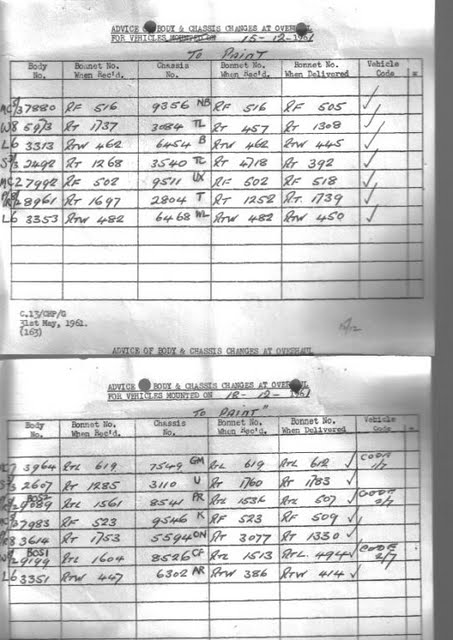 ADVICE OF BODY & CHASSIS CHANGES AT OVERHAUL
FOR VEHICLES MOUNTED ON 15-12-1961
To PAINT
Body No. Bonnet No. When Rec'd. Chassis No. Bonnet No. When Rec'd. Bonnet No. When Delivered Vehicle Code
7880 RF 516 9356 NB RF 516 RF 505 ✓
W8 5973 RT 1737 3084 TL RT 457 RT 1308 ✓
L6 3313 RTW 462 6454 B RTW 462 RTW 445 ✓
2492 RT 1268 3540 TC RT 4718 RT 392 ✓
7992 RF 502 9511 UX RF 502 RF 518 ✓
8961 RT 1697 2804 T RT 1252 RT 1739 ✓
L6 3353 RTW 482 6468 WL RTW 482 RTW 450 ✓
C.13/CHP/G
31st May, 1961.
(163)
15/12
ADVICE OF BODY & CHASSIS CHANGES AT OVERHAUL
ADVICE OF BODY & CHASSIS CHANGES AT OVERHAUL
FOR VEHICLES MOUNTED ON 18-12-1961
To PAINT"
Body No. Bonnet No. When Rec'd. Chassis No. Bonnet No. When Rec'd. Bonnet No. When Delivered Vehicle Code
3964 RTL 619 7549 GM RTL 619 RTL 612 ✓ CODE 1/7
2607 RT 1285 3110 U RT 1760 RT 1783 ✓
9089 BOS2 RTL 1561 8541 PR RTL 1536 RTL 507 ✓ CODE
7983 RF 523 9546 K RF 523 RF 509 ✓
3614 RT 1753 5594 ON RT 3077 RT 1330 ✓
9199 BOS1 RTL 1604 8526 CF RTL 1513 RTL. 494 ✓ CODE 2/7
L6 3351 RTW 447 6302 AR RTW 386 RTW 414 ✓